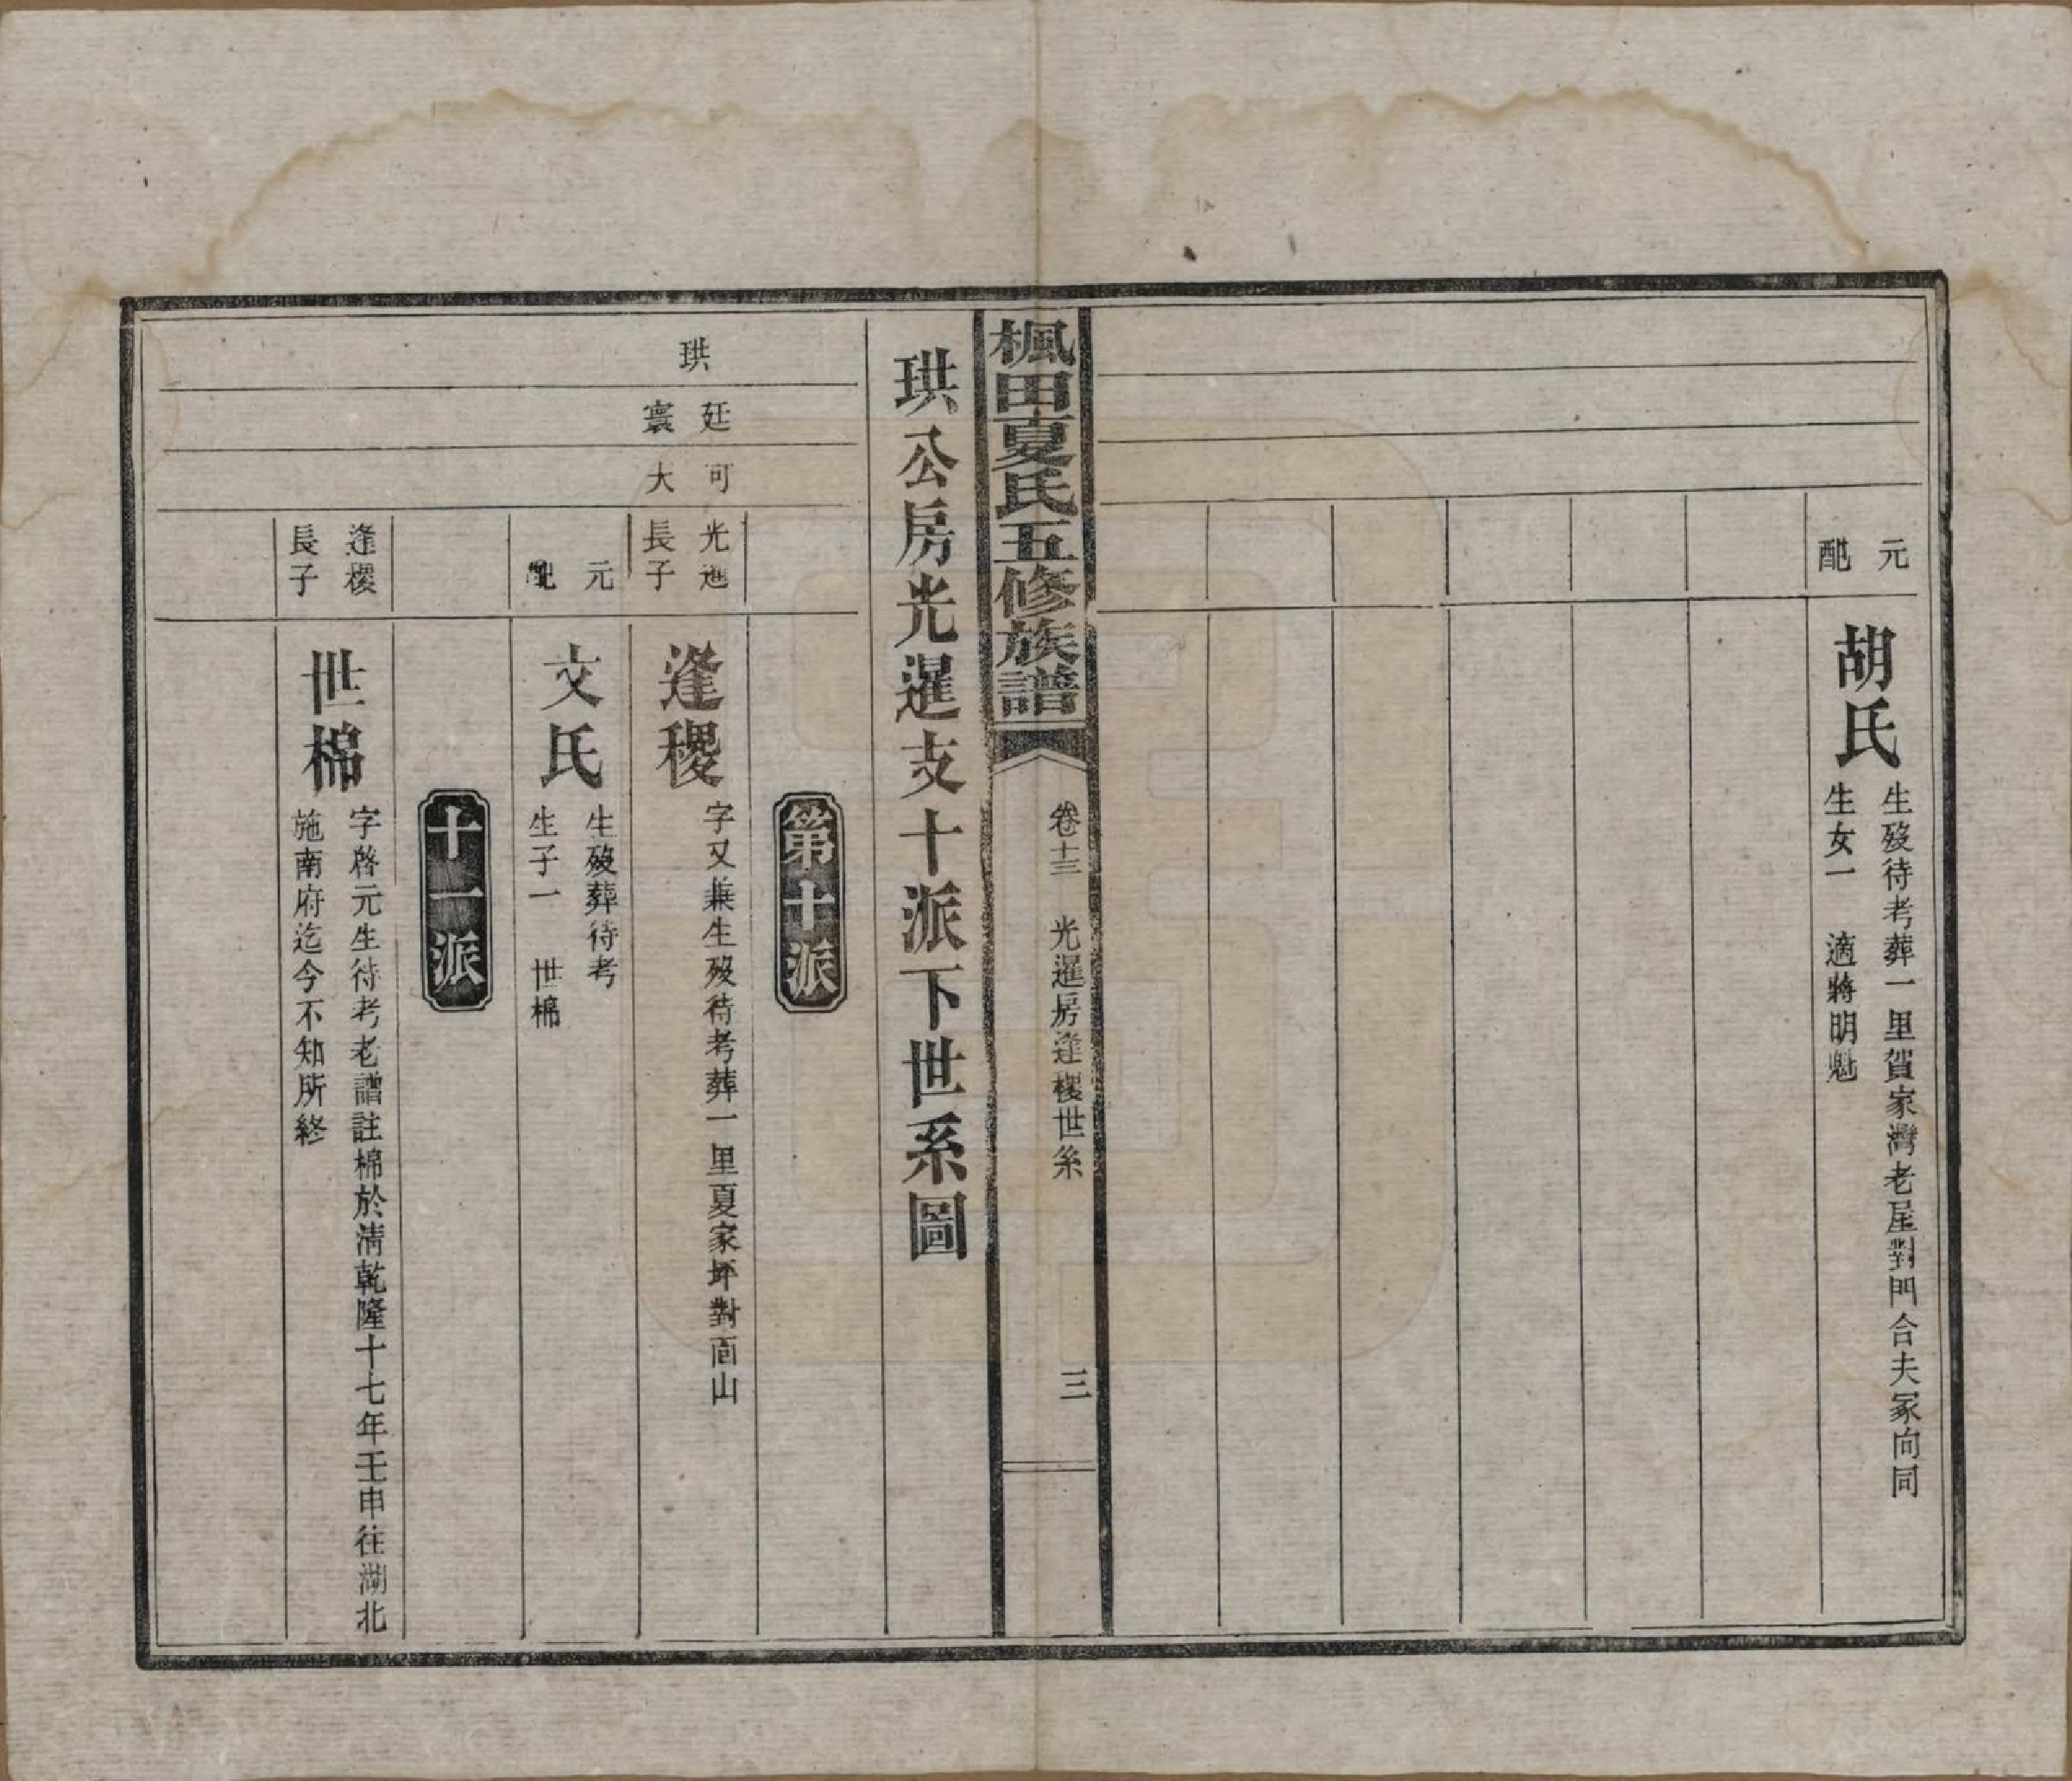 元配
胡氏
生歿待考葬一里賀家灣老屋對門合夫冢向同
生女一　適蔣明魁
楓田夏氏五修族譜
卷十三　光暹房逢稷世系
三
珙公房光暹支十派下世系圖
第十派
珙
廷寰
可大
光進長子
逢稷
字又燕生歿待考葬一里夏家坪對面山
元配
文氏
生歿葬待考
生子一　世棉
十一派
逢稷長子
世棉
字啓元生待考老譜註棉於清乾隆十七年壬申往湖北
施南府迄今不知所終